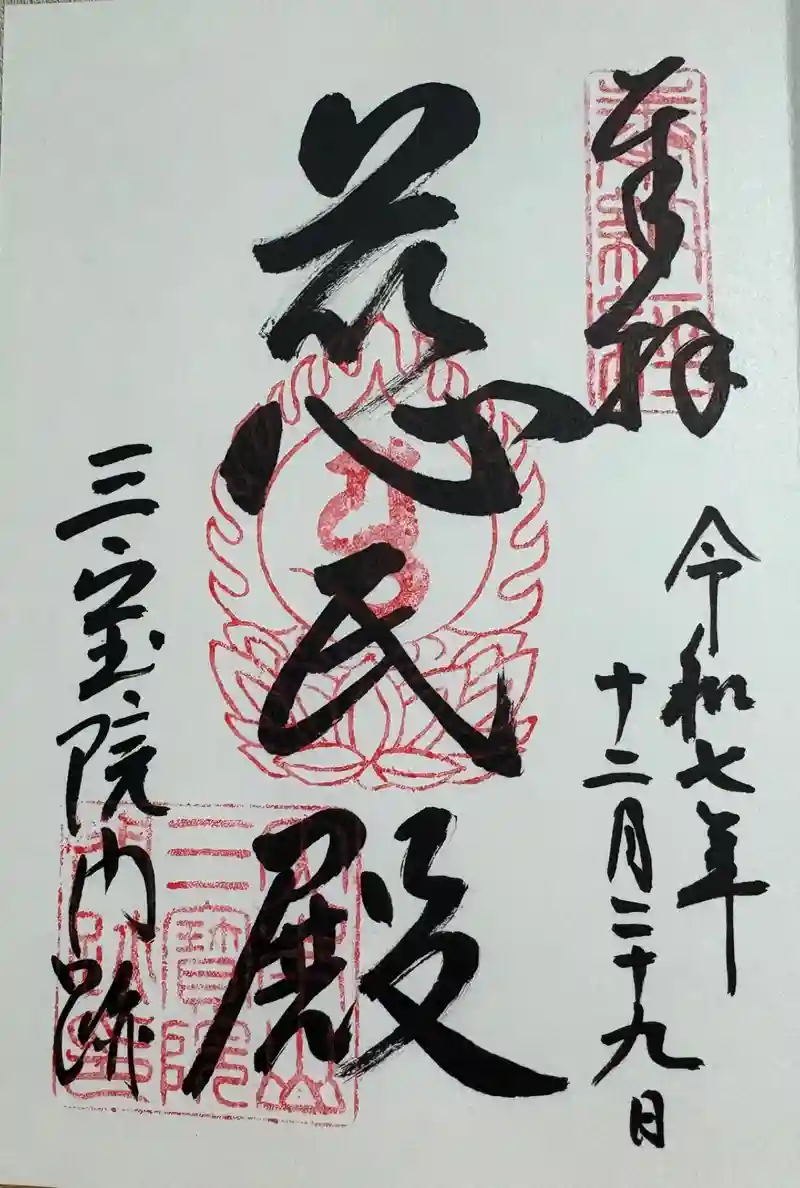 奉拝
令和七年
十二月二十九日
慈氏殿
三宝院門跡
三寶院